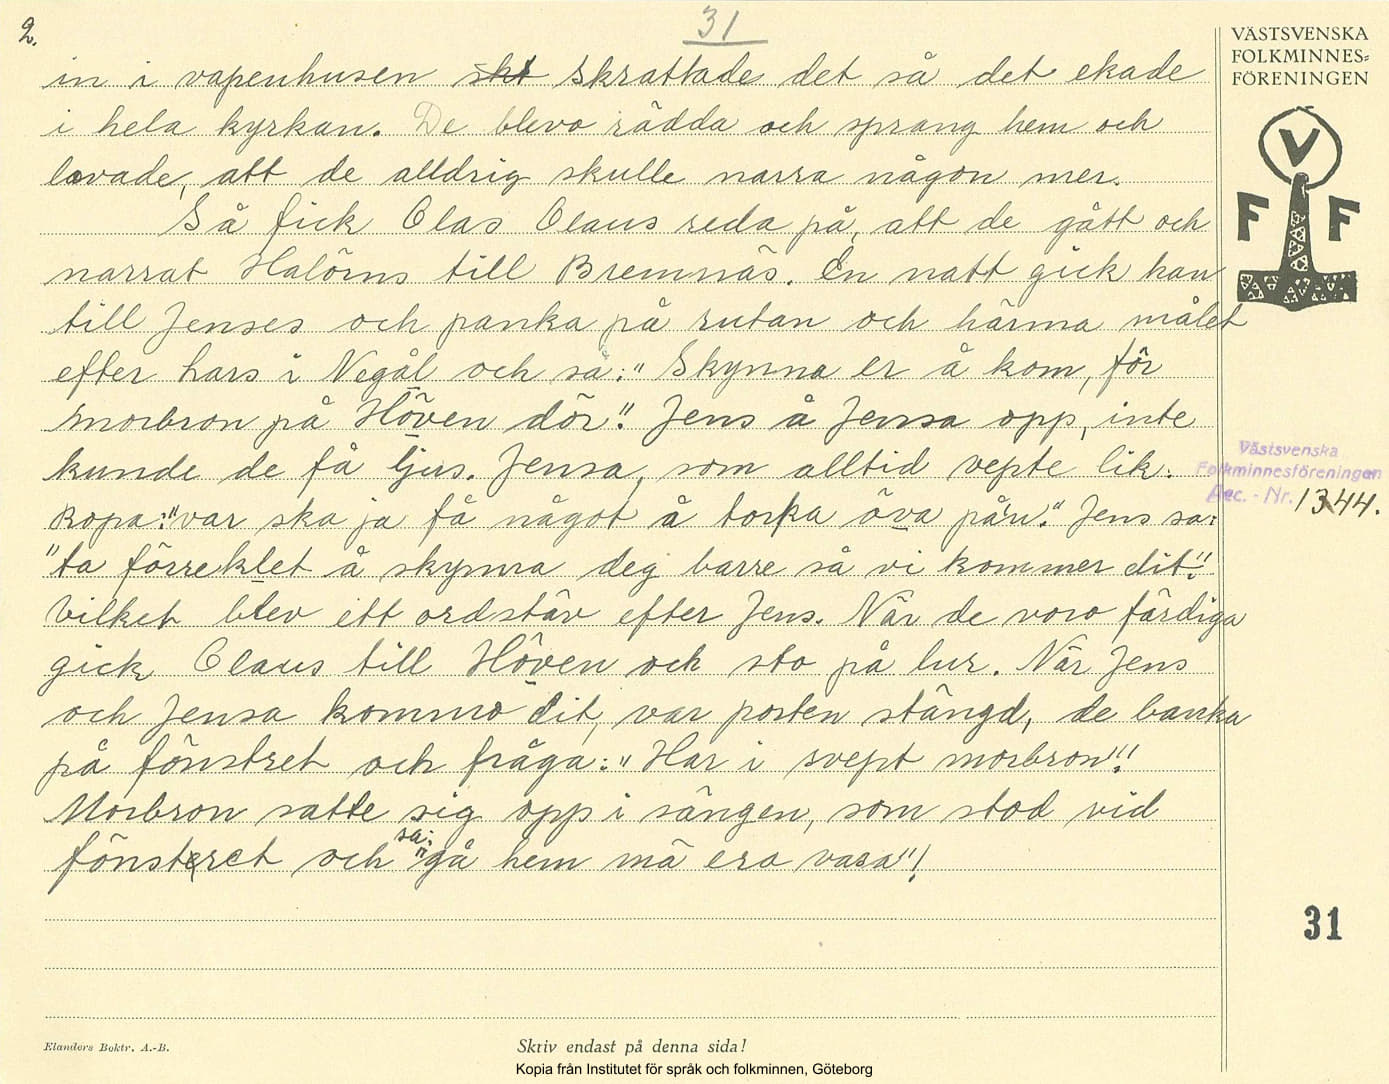 2.
31
in i vapenhusen skt skrattade det så det ekade
i hela kyrkan. De blevo rädda och sprang hem och
lovade, att de alldrig skulle narra någon mer.
Så fick Olas Olaus reda på, att de gått och
narrat Halörns till Bremnäs. En natt gick han
till Jenses och panka på rutan och härma målet
efter hars i Vegål och sa: "Skynna er å kom, för
morbron på Höven dör". Jens å Jensa opp, inte
kunde de få ljus. Jensa, som alltid vepte lik:
ropa: "var ska ja få något å torka öva på'n." Jens sa:
"ta förreklet å skynna deg barre så vi kommer dit"!
vilket blev ett ordstäv efter Jens. När de voro färdiga
gick Olaus till Höven och sto på lur. När Jens
och Jensa kommo dit, var porten stängd, de banka
på fönstret och fråga: "Har i svept morbron"!
Morbron satte sig opp i sängen, som stod vid
fönsteret och sa: "gå hem mä era vasa"!
VÄSTSVENSKA
FOLKMINNES=
FÖRENINGEN
V
F F
Västsvenska
Folkminnesföreningen
Acc. - Nr. 1344.
31
Elanders Boktr. A.-B.
Skriv endast på denna sida!
Kopia från Institutet för språk och folkminnen, Göteborg